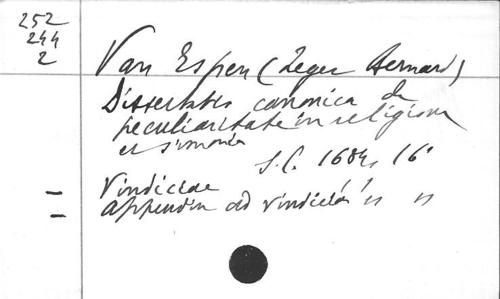 252
244
2
Van Espen (Zeger Bernard)
Dissertatio canonica de
peculiaritate in religione
et simonia
S.l. 1684, 16°
— Vindiciae " "
— appendix ad vindicias " "